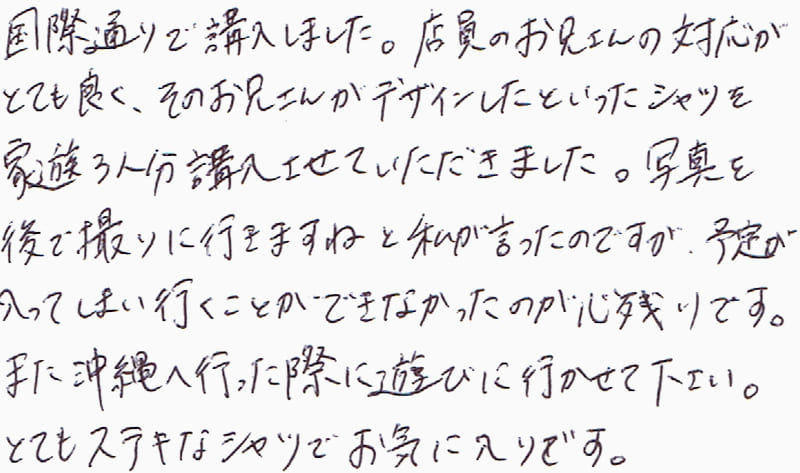 国際通りで講入しました。店員のお兄さんの対応が
とても良く、そのお兄さんがデザインしたといったシャツを
家族3人分講入させていただきました。写真を
後で撮りに行きますねと私が言ったのですが、予定が
入ってしまい行くことができなかったのが心残りです。
また沖縄へ行った際に遊びに行かせて下さい。
とてもステキなシャツでお気に入りです。